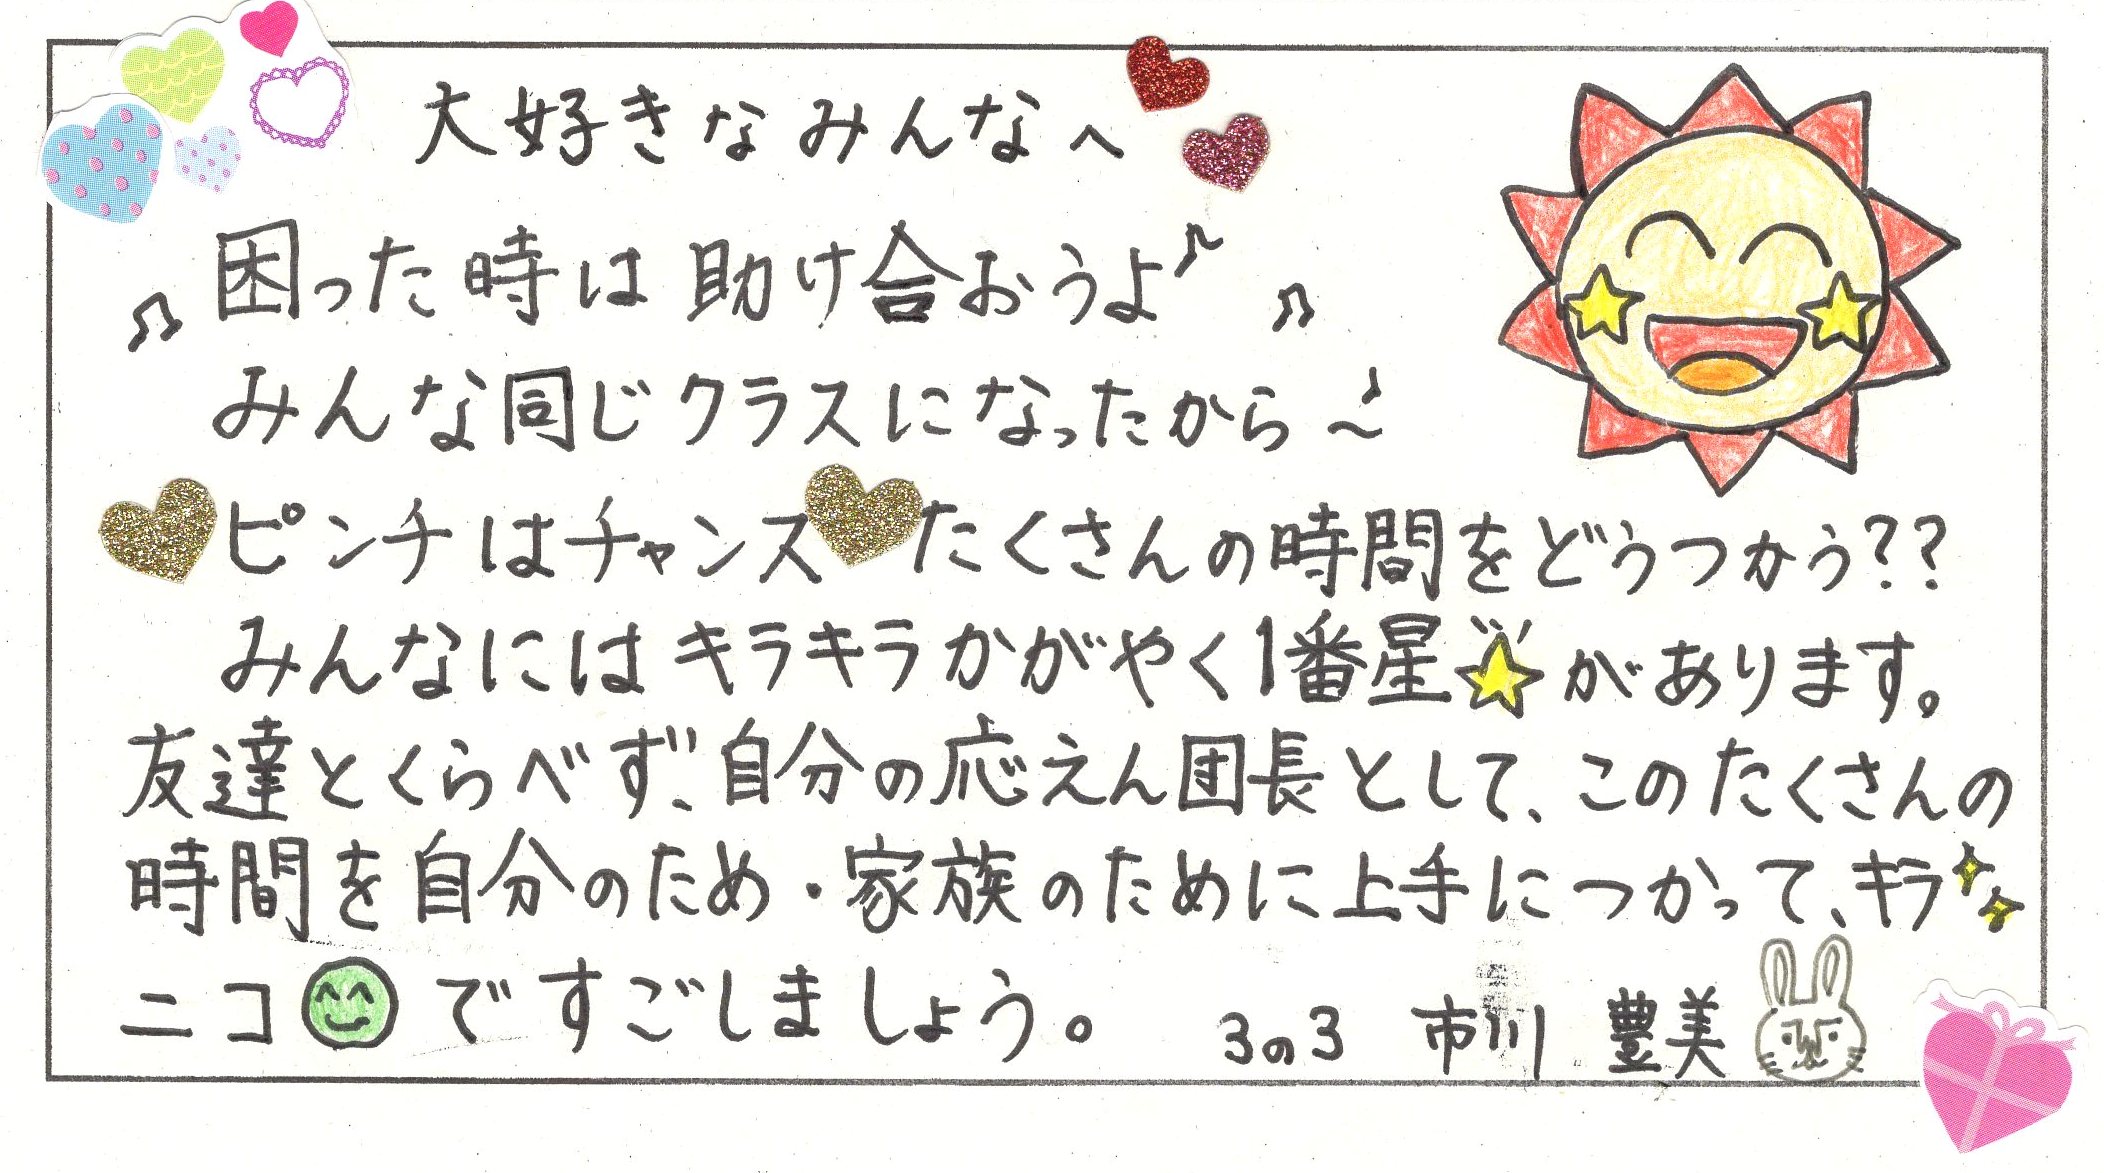 大好きなみんなへ
困った時は助け合おうよ♪
みんな同じクラスになったから〜♪
ピンチはチャンス たくさんの時間をどうつかう??
みんなにはキラキラかがやく1番星があります。
友達とくらべず、自分の応えん団長として、このたくさんの
時間を自分のため・家族のために上手につかって、キラ
ニコですごしましょう。 3の3 市川 豊美